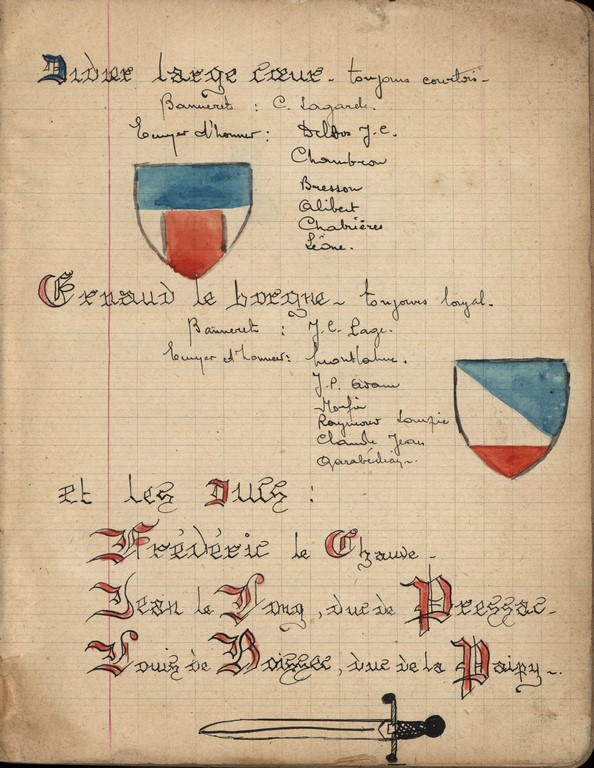 Didier large cœur - toujours courtois -
Banneret : C. Lagarde.
Ecuyer d'honneur : Delbos J.C.
Chambron
Bresson
Alibert
Chabrières
Léone.
Ernaud le borgne - toujours loyal.
Banneret : J.C. Lage.
Ecuyer d'honneur :
J.P. Adam
Raymond
Claude Jean
Garabédian -
et les Ducs :
Frédéric le Chauve -
Jean le Long, duc de Pressac -
Louis de Boissec, duc de la Paipy -